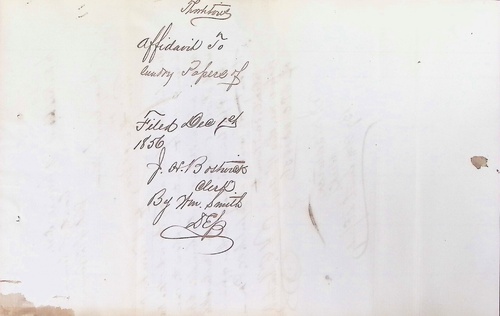 Affidavit To
Sundry Papers of
Filed Dec 1st
1856
J. W. Bostwick
Clerk
By Wm. Smith
DEp